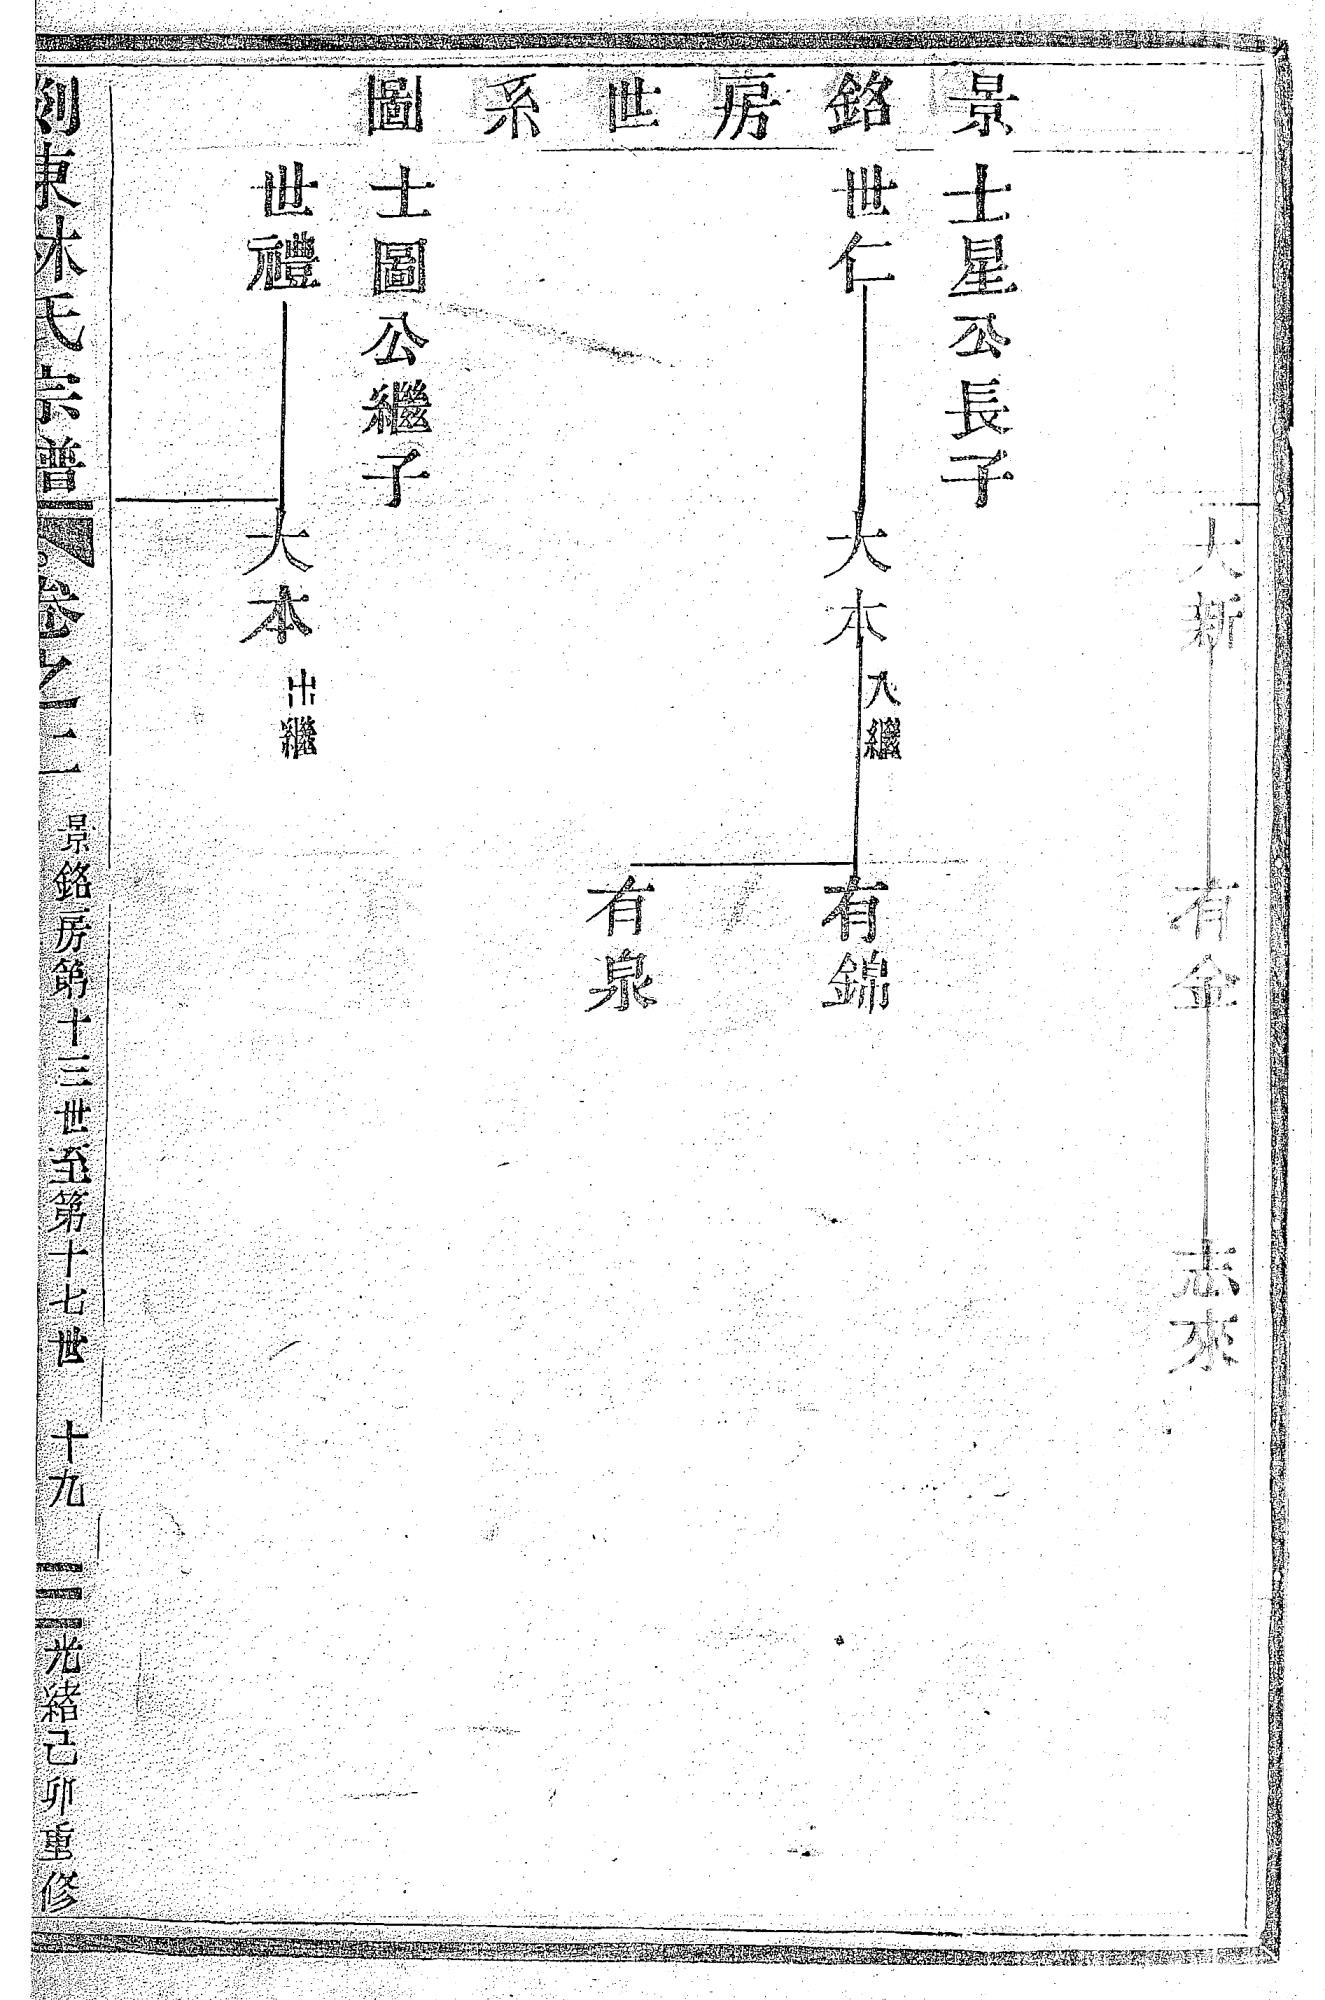 景銘房世系圖
大新
有金
志來
士星公長子
世仁
大本
入繼
有錦
有泉
士圖公繼子
世禮
大本
出繼
剡東林氏宗譜
卷之二
景銘房第十三世至第十七世
十九
光緒己卯重修